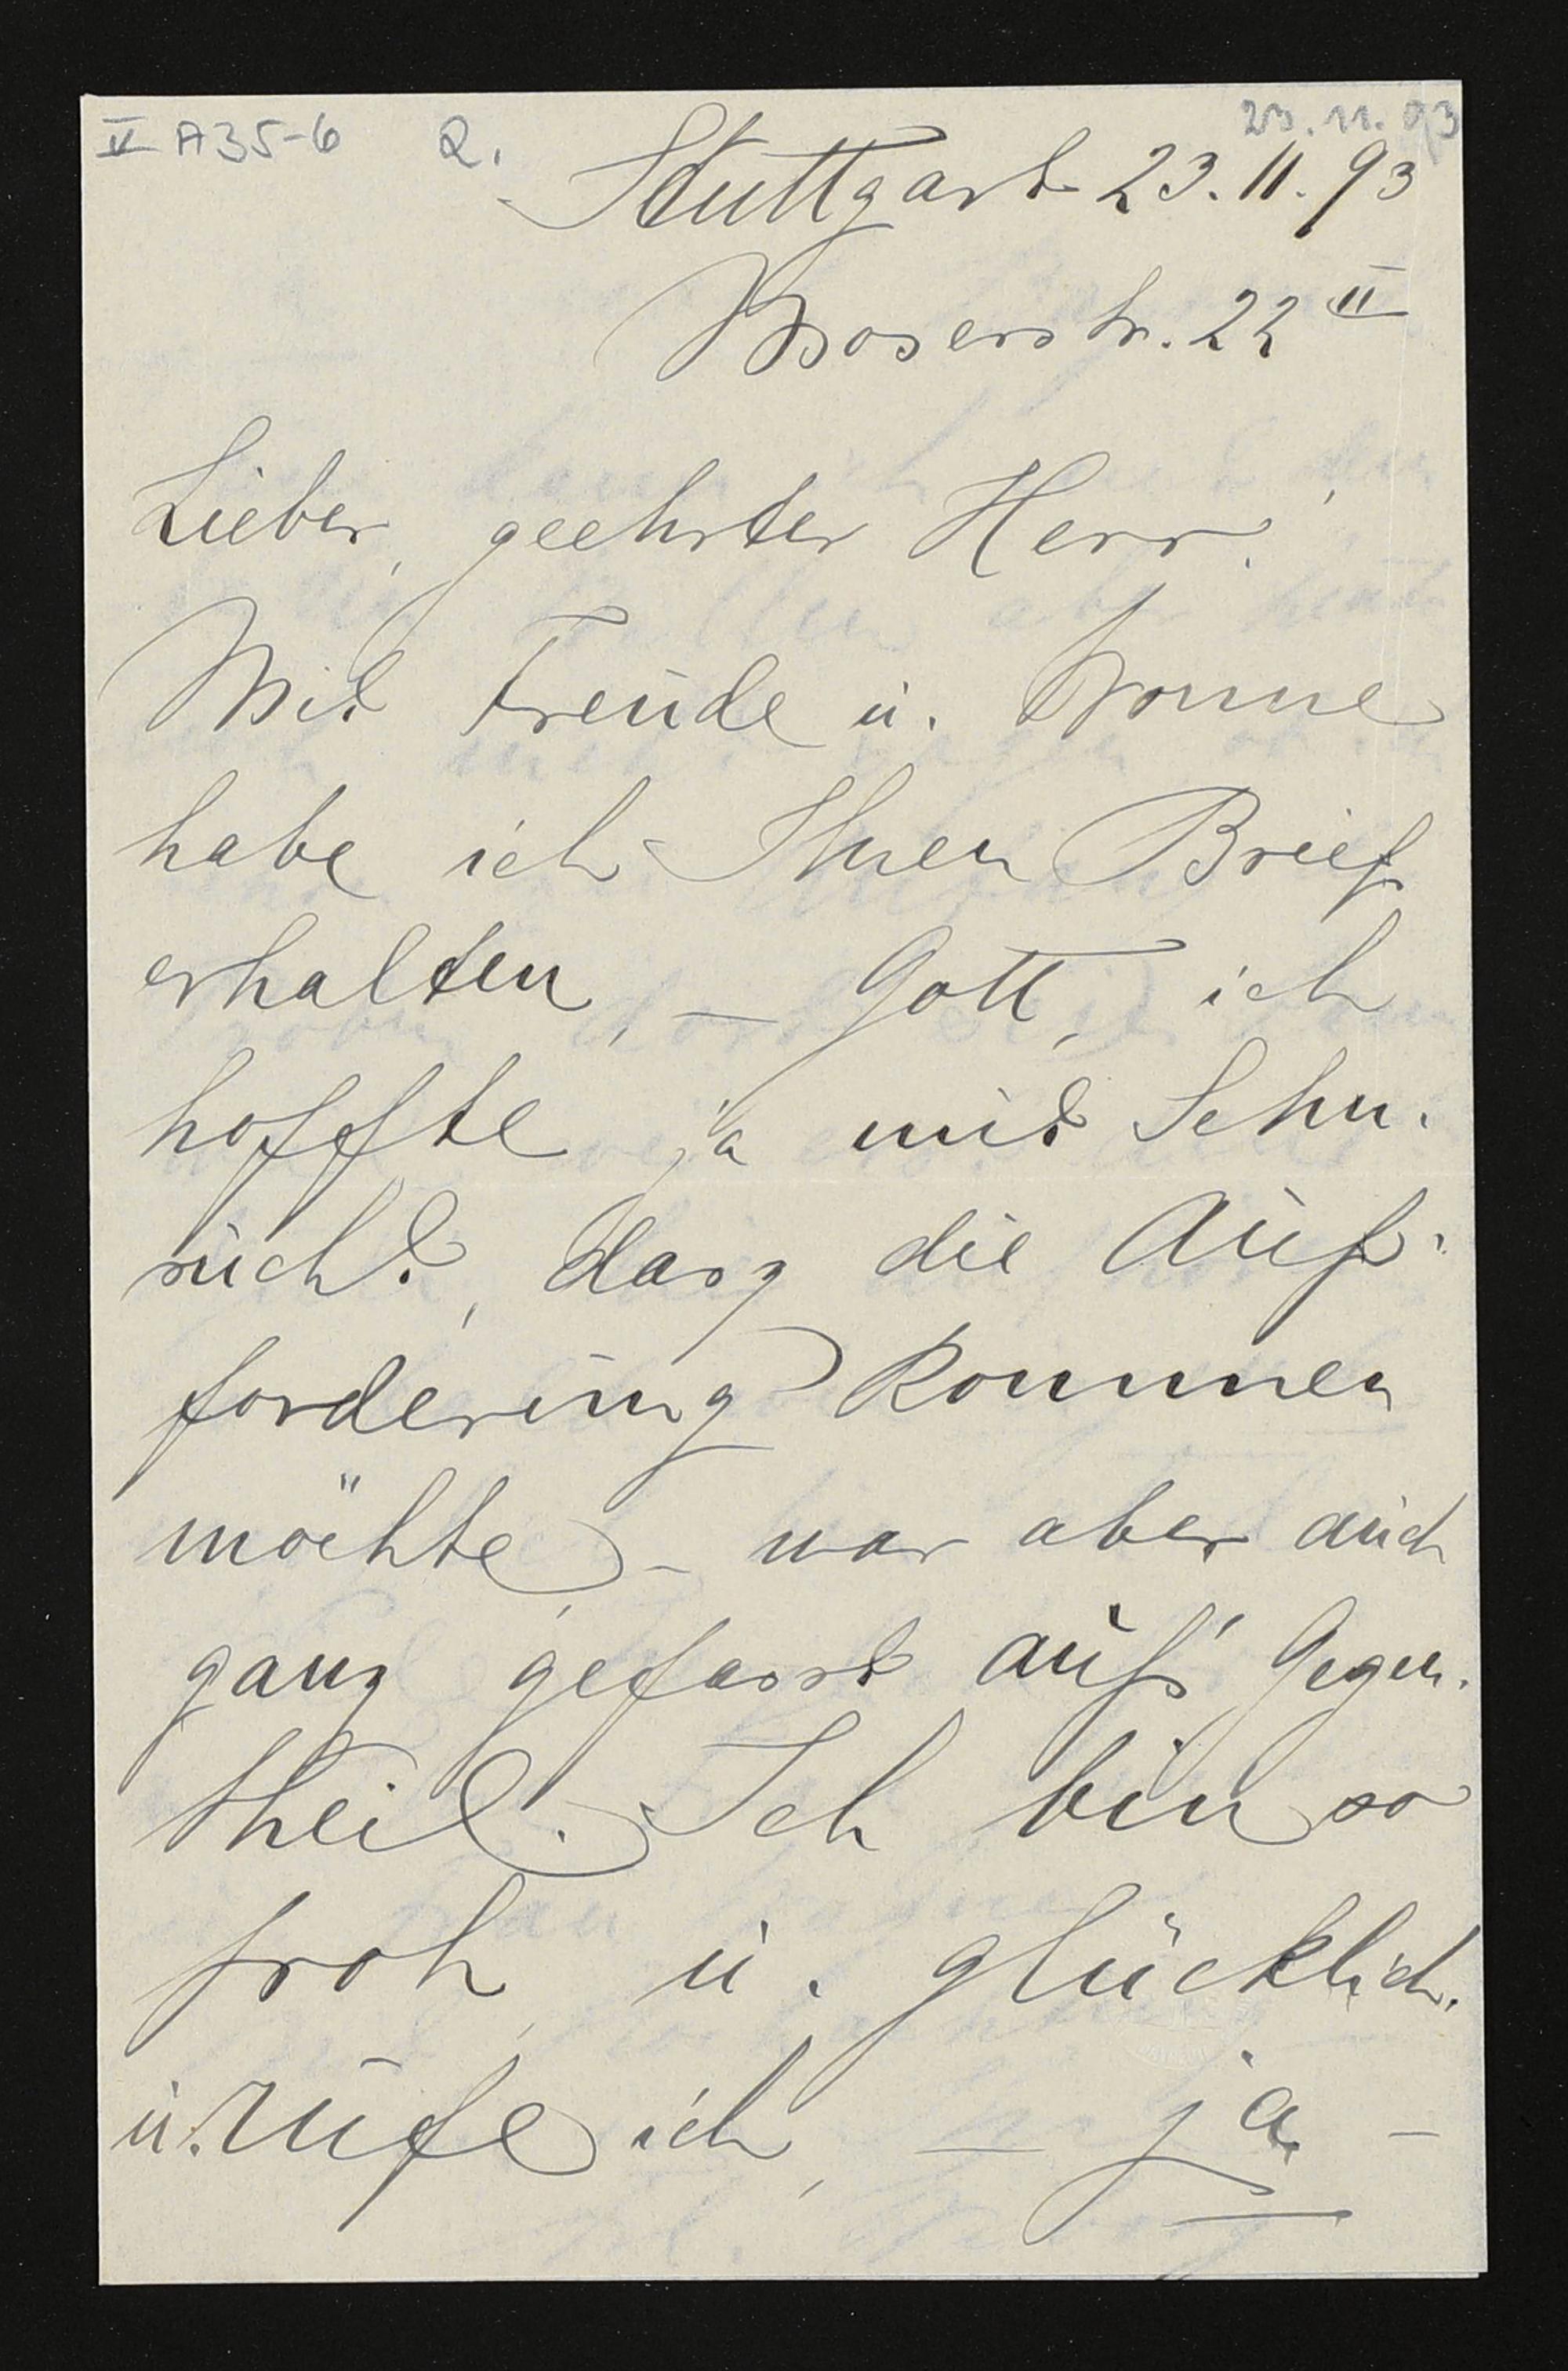 V A35-6 2. 23.11.93
Stuttgart 23.11.93
Moserstr. 22 II
Lieber, geehrter Herr!
Mit Freude u. Wonne
habe ich Ihren Brief
erhalten, – Gott, ich
hoffte ja mit Sehn-
sucht, dass die Auf-
forderung kommen
möchte, – war aber auch
ganz gefasst auf's Gegen-
theil. Ich bin so
froh u. glücklich.
u. rufe ich, – ja –